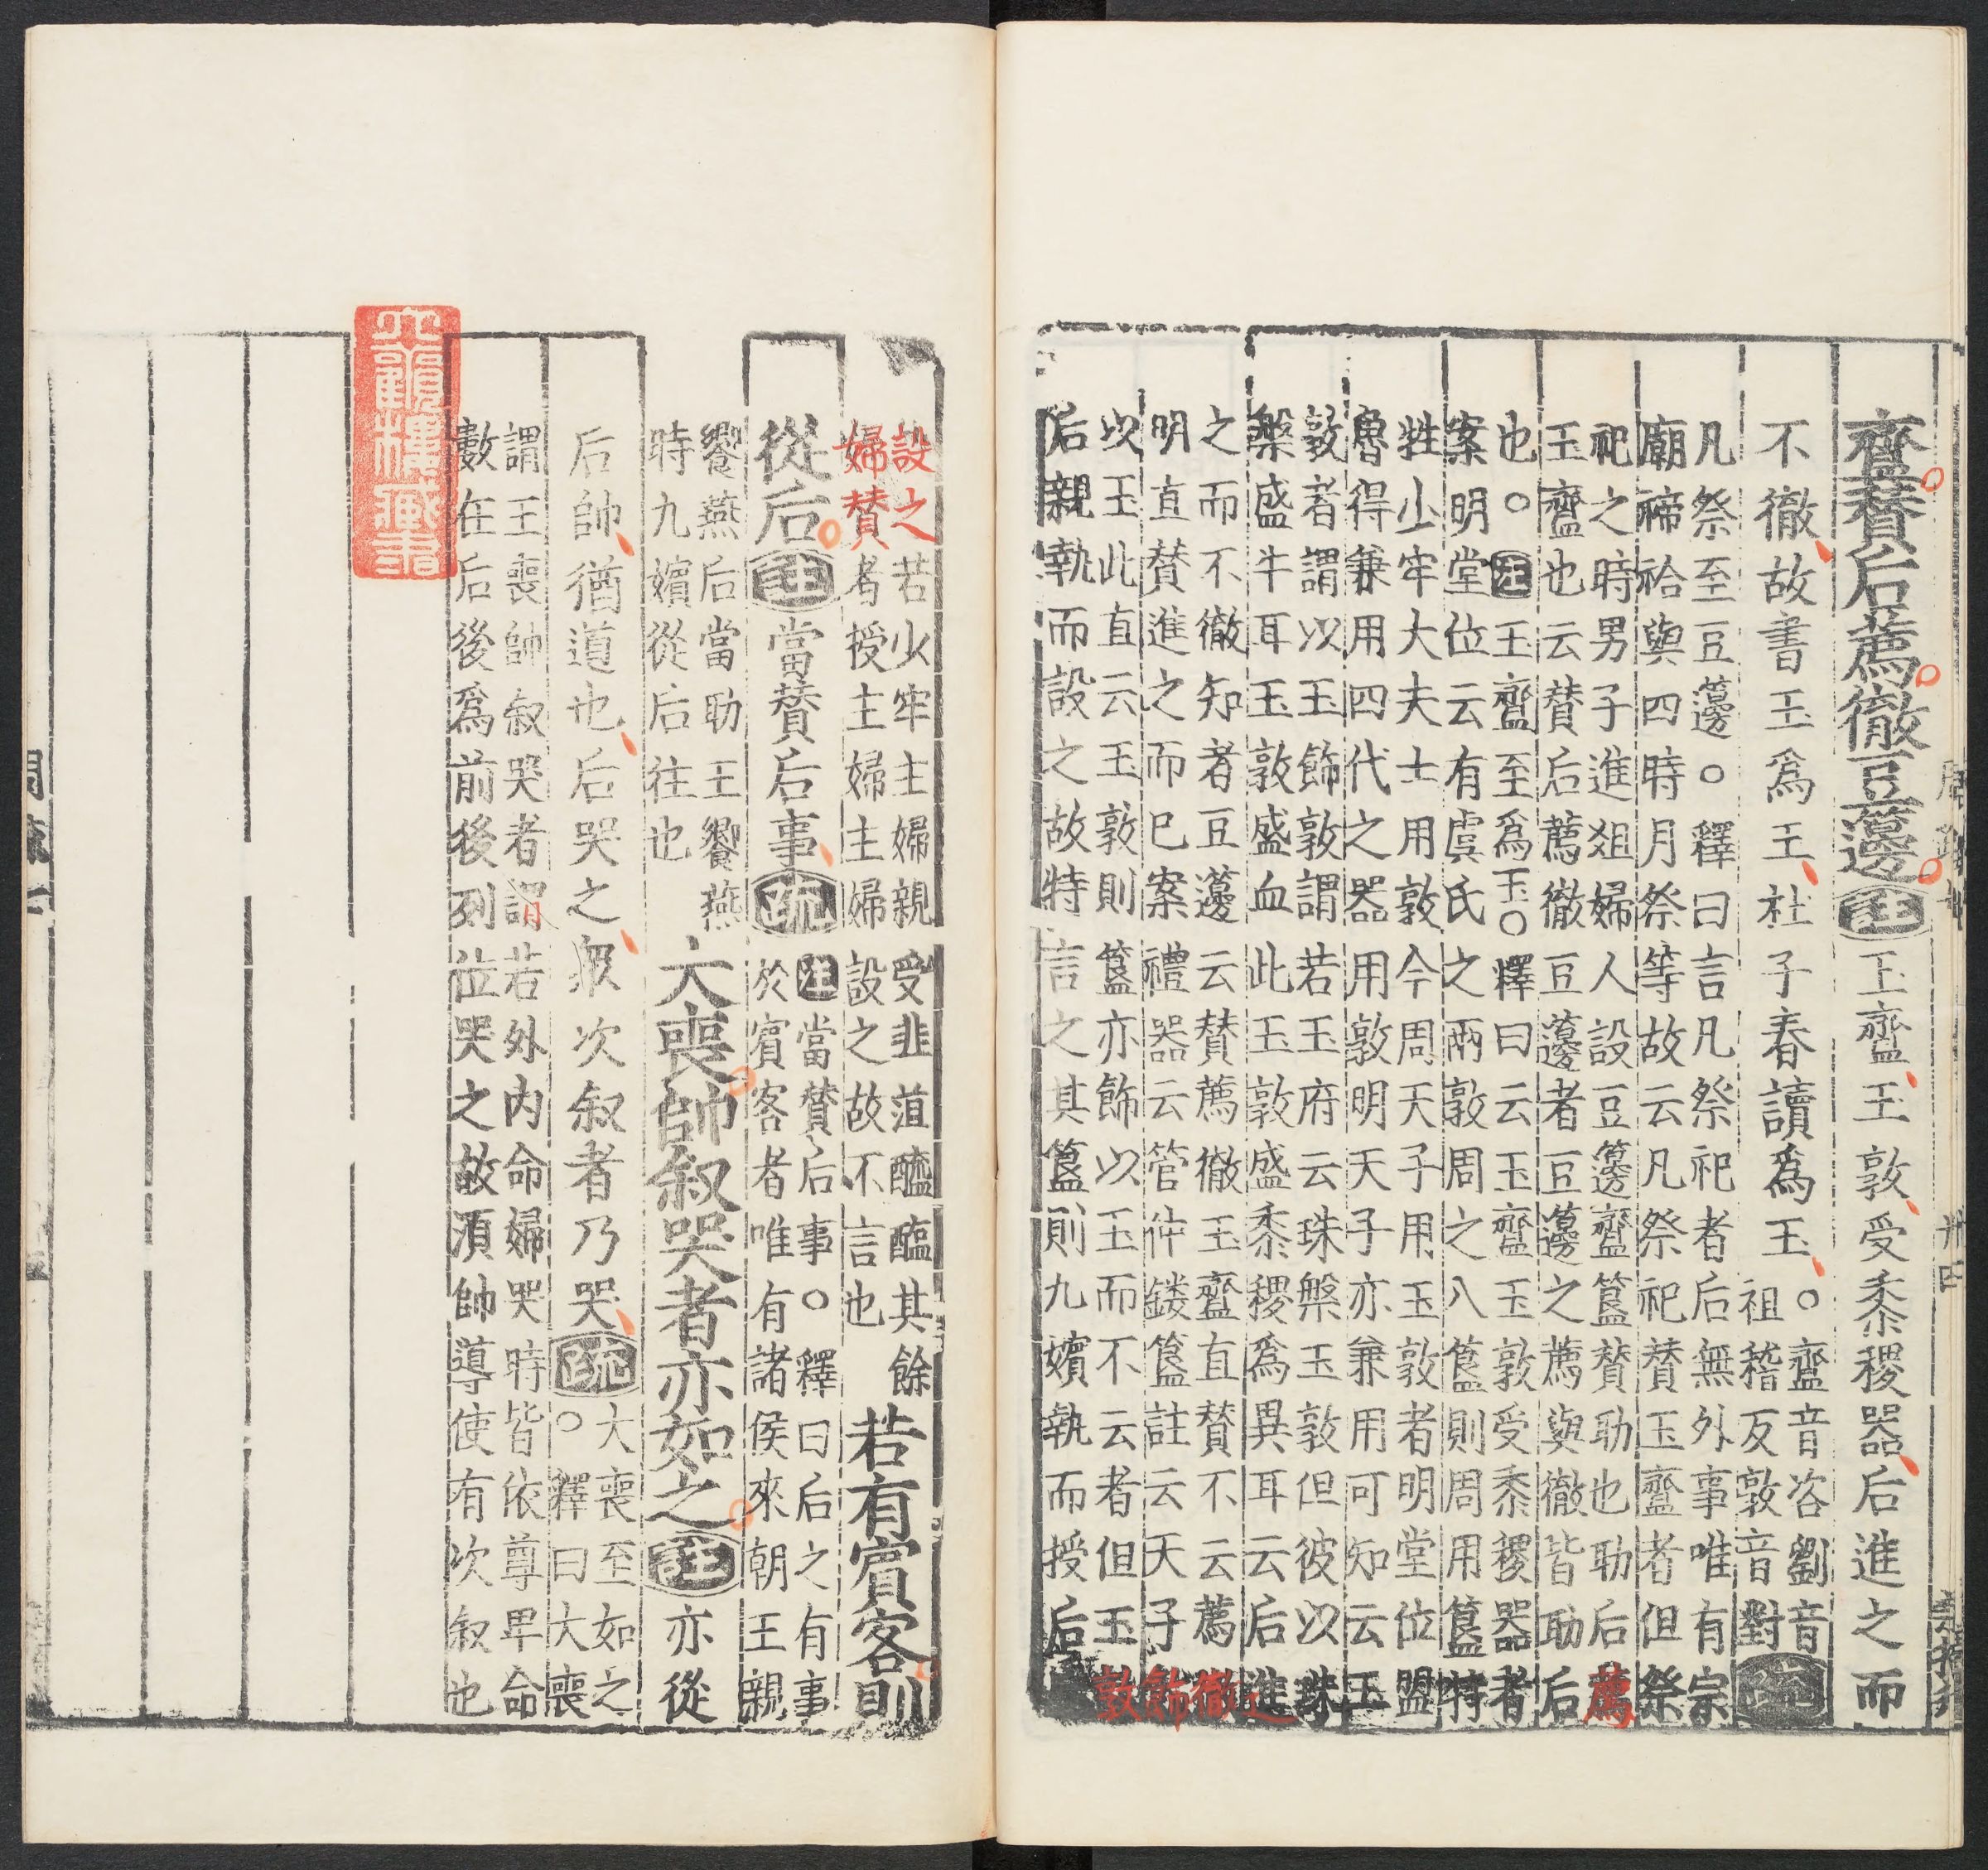 齍贊后薦徹豆籩註玉齍玉敦受黍稷器后進之而
不徹故書玉爲王杜子春讀爲玉○齍音咨劉音
祖稽反敦音對疏
凡祭至豆籩○釋曰言凡祭祀者后無外事唯有宗
廟禘祫與四時月祭等故云凡祭祀贊玉齍者但祭
祀之時男子進俎婦人設豆籩齍簋贊助也助后薦
玉齍也云贊后薦徹豆籩者豆籩之薦與徹皆助后
也○注玉齍至爲玉○釋曰云玉齍玉敦受黍稷器者
案明堂位云有虞氏之兩敦周之八簋則周用簋特
牲少牢大夫士用敦今周天子用玉敦者明堂位盟
魯得兼用四代之器用敦明天子亦兼用可知云玉
敦者謂以玉飾敦謂若玉府云珠槃玉敦但彼以珠
槃盛牛耳玉敦盛血此玉敦盛黍稷爲異耳云后進
之而不徹知者豆籩云贊薦徹玉齍直贊不云薦徹
明直贊進之而已案禮器云管仲鏤簋註云天子飾
以玉此直云玉敦則簋亦飾以玉而不云者但玉敦
后親執而設之故特言之其簋則九嬪執而授后
設之若少牢主婦親受韭菹醯醢其餘
婦贊者授主婦主婦設之故不言也
若有賓客則
從后註當贊后事疏
注當贊后事○釋曰后之有事
於賓客者唯有諸侯來朝王親
饗燕后當助王饗燕
時九嬪從后往也
大喪帥叙哭者亦如之註亦從
后帥猶道也后哭之衆次叙者乃哭疏
大喪至如之
○釋曰大喪
謂王喪帥叙哭者謂若外内命婦哭時皆依尊卑命
數在后後爲前後列位哭之故須帥導使有次叙也